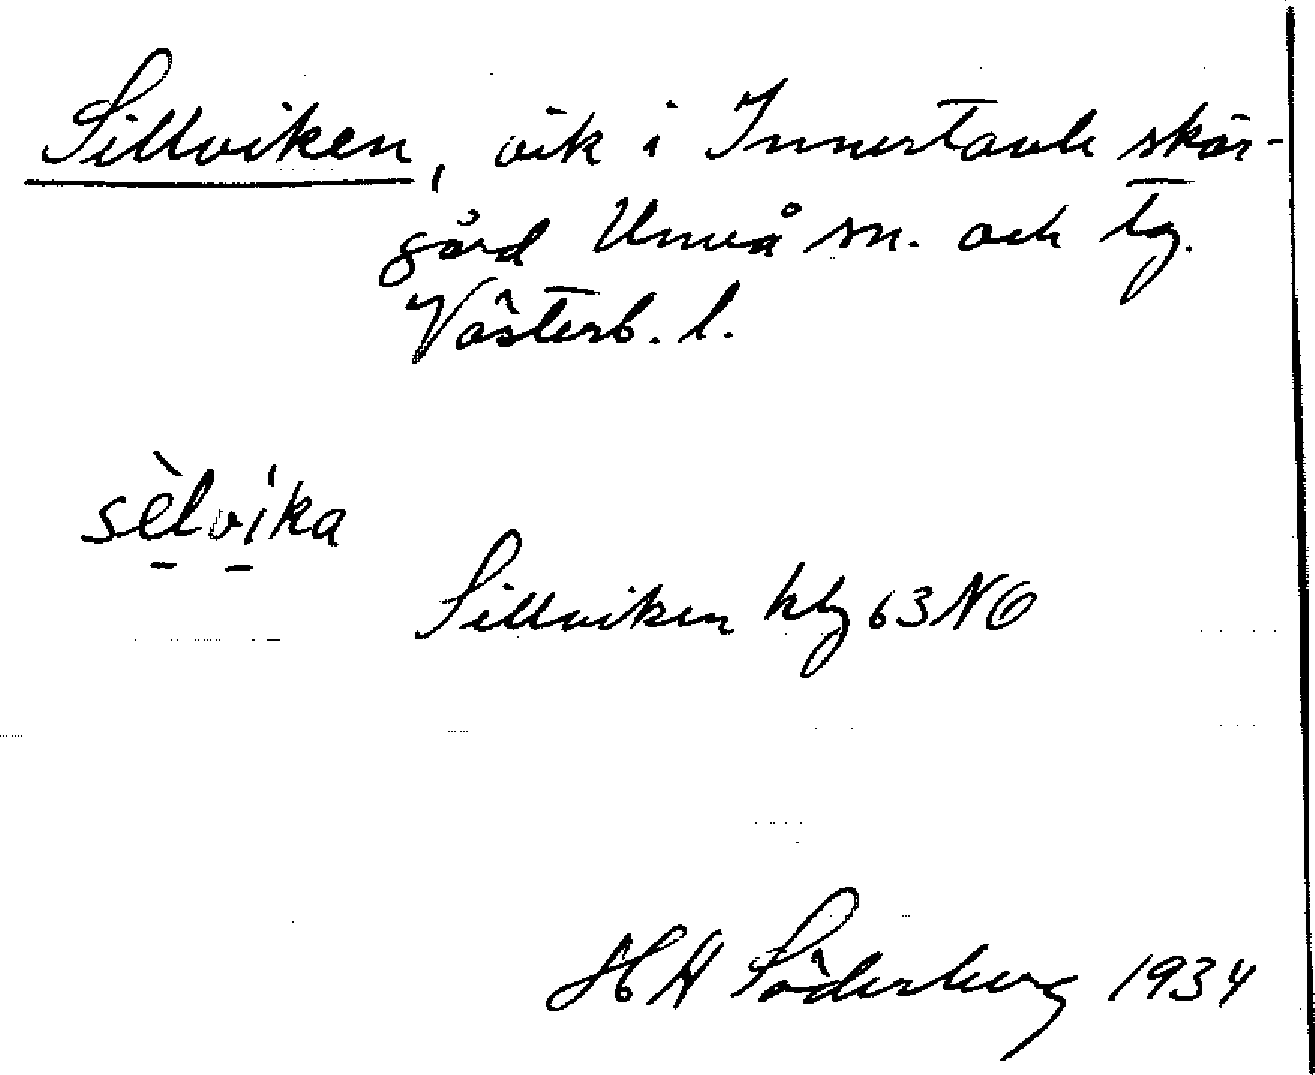 Sillviken, vik i Innertavle skär-
gård Umeå sn. och tg.
Västerb. l.
sèlvika
Sillviken kbg 63 NO
H A Söderberg 1934